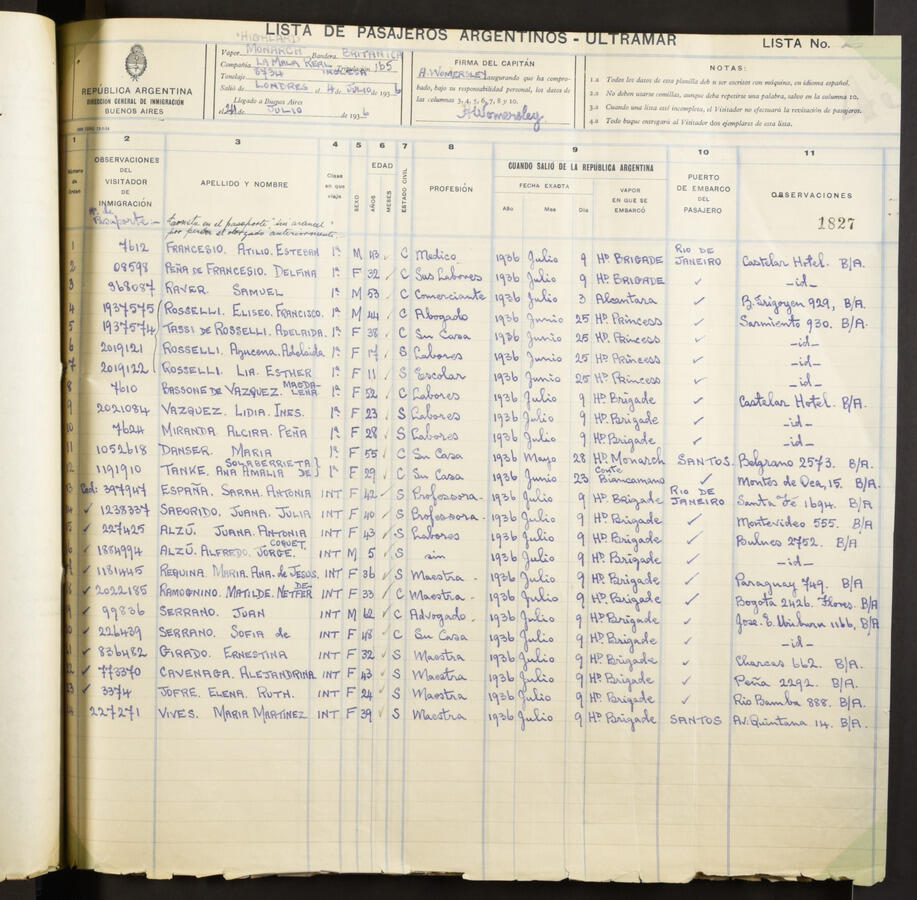 LISTA DE PASAJEROS ARGENTINOS - ULTRAMAR
LISTA No.
REPÚBLICA ARGENTINA
DIRECCION GENERAL DE INMIGRACIÓN
BUENOS AIRES
"HIGHLAND
Vapor MONARCH Bandera BRITANICA
Compañía LA MALA REAL INGLESA Tripulación 165
Tonelaje 8734
Salió de LONDRES el 4 JULIO de 1936
Llegado a Buenos Aires
el 24 de JULIO de 1936
FIRMA DEL CAPITÁN
A. WOMERSLEY asegurando que ha comprobado, bajo su responsabilidad personal, los datos de las columnas 3, 4, 5, 6, 7, 8 y 10.
A Womersley
NOTAS:
1.a Todos los datos de esta planilla deben ser escritos con máquina, en idioma español.
2.a No deben usarse comillas, aunque deba repetirse una palabra, salvo en la columna 10.
3.a Cuando una lista esté incompleta, el Visitador no efectuará la revisación de pasajeros.
4.a Todo buque entregará al Visitador dos ejemplares de esta lista.
1 2 3 4 5 6 7 8 9 10 11
Número de Orden
OBSERVACIONES DEL VISITADOR DE INMIGRACIÓN
APELLIDO Y NOMBRE
Clase en que viaja
SEXO
EDAD
AÑOS
MESES
ESTADO CIVIL
PROFESIÓN
CUANDO SALIÓ DE LA REPÚBLICA ARGENTINA
FECHA EXACTA
Año Mes Día
VAPOR EN QUE SE EMBARCÓ
PUERTO DE EMBARCO DEL PASAJERO
OBSERVACIONES
1827
Nº de Pasaporte
consta en el pasaporte "sin arancel
por perder el otorgado anteriormente
1 7612 FRANCESIO. ATILIO. ESTEBAN 1ª M 43 C Medico 1936 Julio 9 Hd BRIGADE RIO DE JANEIRO Castelar Hotel. B/A.
2 08598 PEÑA DE FRANCESIO. DELFINA 1ª F 32 C Sus Labores 1936 Julio 9 Hd BRIGADE ✓ -id-
3 968087 RAVER. SAMUEL 1ª M 53 C Comerciante 1936 Julio 3 Alcantara ✓ B. Irigoyen 929, B/A.
4 1937575 ROSSELLI. ELISEO. FRANCISCO. 1ª M 44 C Abogado 1936 Junio 25 Hd Princess ✓ Sarmiento 930. B/A.
5 1937574 TASSI DE ROSSELLI. ADELAIDA. 1ª F 38 C Su Casa 1936 Junio 25 Hd Princess ✓ -id-
6 2019121 ROSSELLI. Azucena. Adelaida 1ª F 17 S Labores 1936 Junio 25 Hd Princess ✓ -id-
7 2019122 ROSSELLI. LIA. ESTHER 1ª F 11 S Escolar 1936 Junio 25 Hd Princess ✓ -id-
8 7610 BASSONE DE VAZQUEZ. MAGDALENA 1ª F 52 C Labores 1936 Julio 9 Hd Brigade ✓ Castelar Hotel. B/A.
9 2021084 VAZQUEZ. LIDIA. INES. 1ª F 23 S Labores 1936 Julio 9 Hd Brigade ✓ -id-
10 7624 MIRANDA ALCIRA. PEÑA 1ª F 28 S Labores 1936 Julio 9 Hd Brigade ✓ -id-
11 1052618 DANSER. MARIA 1ª F 55 C Su Casa 1936 Mayo 28 Hd Monarch SANTOS. Belgrano 2573. B/A.
12 1191910 TANKE. ANA AMALIA DE SOLABERRIETA 1ª F 29 C Su Casa 1936 Junio 23 Conte Biancamano ✓ Montes de Oca, 15. B/A.
13 Ced: 397947 ESPAÑA. SARAH. ANTONIA INT F 42 S Professora 1936 Julio 9 Hd Brigade RIO DE JANEIRO Santa Fe 1694. B/A
14 ✓ 1238337 SABORIDO. JUANA. JULIA INT F 40 S Professora 1936 Julio 9 Hd Brigade ✓ Montevideo 555. B/A
15 ✓ 227425 ALZÚ. JUANA. ANTONIA INT F 43 S Labores 1936 Julio 9 Hd Brigade ✓ Bulnes 2752. B/A
16 ✓ 1884994 ALZÚ. ALFREDO. JORGE. COQUET. INT M 5 S sin 1936 Julio 9 Hd Brigade ✓ -id-
17 ✓ 1181445 REQUINA. MARIA. ANA. de JESUS. INT F 36 S Maestra 1936 Julio 9 Hd Brigade ✓ Paraguay 749. B/A
18 ✓ 2022185 RAMOGNINO. MATILDE. DE NETFER INT F 33 C Maestra 1936 Julio 9 Hd Brigade ✓ Bogota 2426. Flores. B/A
19 ✓ 99836 SERRANO. JUAN INT M 62 C Advogado 1936 Julio 9 Hd Brigade ✓ Jose. E. Uriburu 1166, B/A
20 ✓ 226439 SERRANO. SOFIA de INT F 48 C Su Casa 1936 Julio 9 Hd Brigade ✓ -id-
21 ✓ 836482 GIRADO. ERNESTINA INT F 32 S Maestra 1936 Julio 9 Hd Brigade ✓ Charcas 662. B/A.
22 ✓ 773370 CAVENAGA. ALEJANDRINA INT F 43 S Maestra 1936 Julio 9 Hd Brigade ✓ Peña 2292. B/A.
23 ✓ 3374 JOFRE. ELENA. RUTH. INT F 24 S Maestra 1936 Julio 9 Hd Brigade ✓ Rio Bamba 888. B/A.
24 227271 VIVES. MARIA MARTINEZ INT F 39 S Maestra 1936 Julio 9 Hd Brigade SANTOS Av. Quintana 14. B/A.